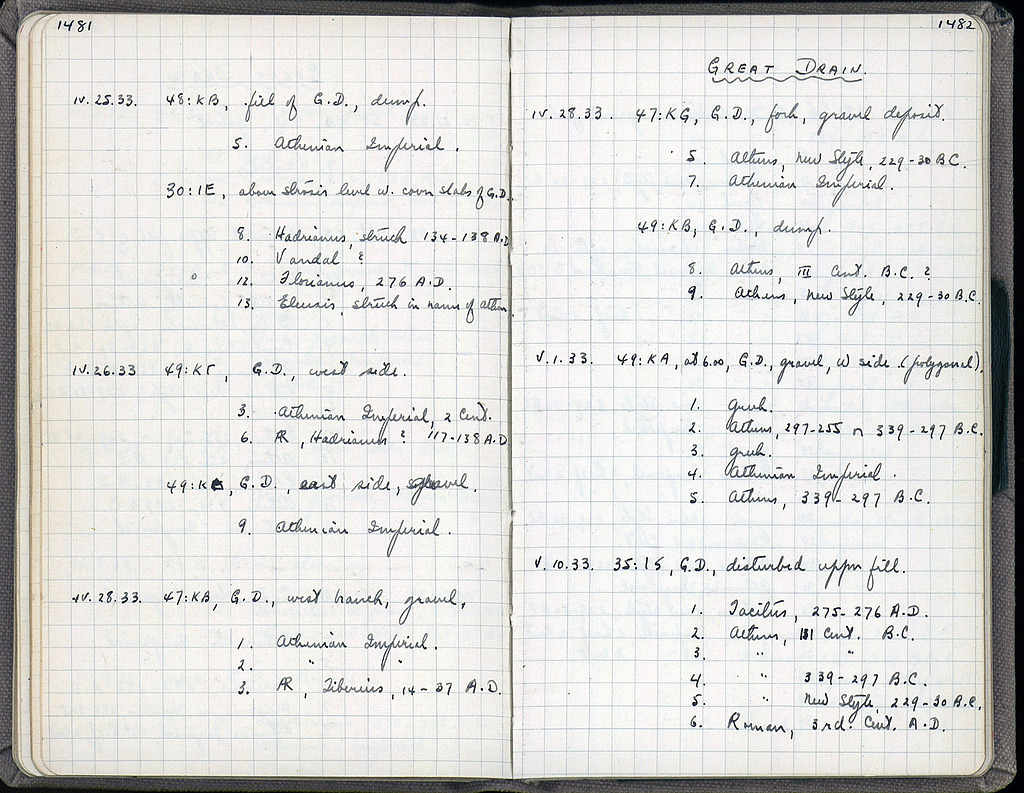 1481
IV.25.33. 48:KB, fill of G.D., dump.
5. Athenian Imperial.
30:IE, above strosis level w. cover slabs of G.D.
8. Hadrianus, struck 134-138 A.D.
10. Vandal ?
12. Florianus, 276 A.D.
13. Eleusis, struck in name of Athens
IV.26.33 49:KΓ, G.D., west side.
3. Athenian Imperial, 2 Cent.
6. AR, Hadrianus ? 117-138 A.D.
49:K, G.D., east side, gravel.
9. Athenian Imperial.
IV.28.33. 47:KB, G.D., west branch, gravel,
1. Athenian Imperial.
2. " "
3. AR, Tiberius, 14-37 A.D.
1482
GREAT DRAIN.
IV.28.33. 47:KG, G.D., fork, gravel deposit.
5. Athens, New Style, 229-30 B.C.
7. Athenian Imperial.
49:KB, G.D., dump.
8. Athens, III Cent. B.C. ?
9. Athens, New Style, 229-30 B.C.
V.1.33. 49:KA, at 6.00, G.D., gravel, W side. (polygonal).
1. Greek.
2. Athens, 297-255 or 339-297 B.C.
3. Greek.
4. Athenian Imperial.
5. Athens, 339-297 B.C.
V.10.33. 35:15, G.D., disturbed upper fill.
1. Tacitus, 275-276 A.D.
2. Athens, III Cent. B.C.
3. " "
4. " 339-297 B.C.
5. " New Style, 229-30 B.C.
6. Roman, 3rd. Cent. A.D.